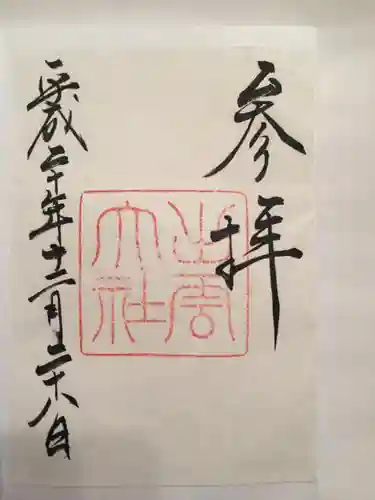 参拝
出雲大社
平成二十年十二月二十八日